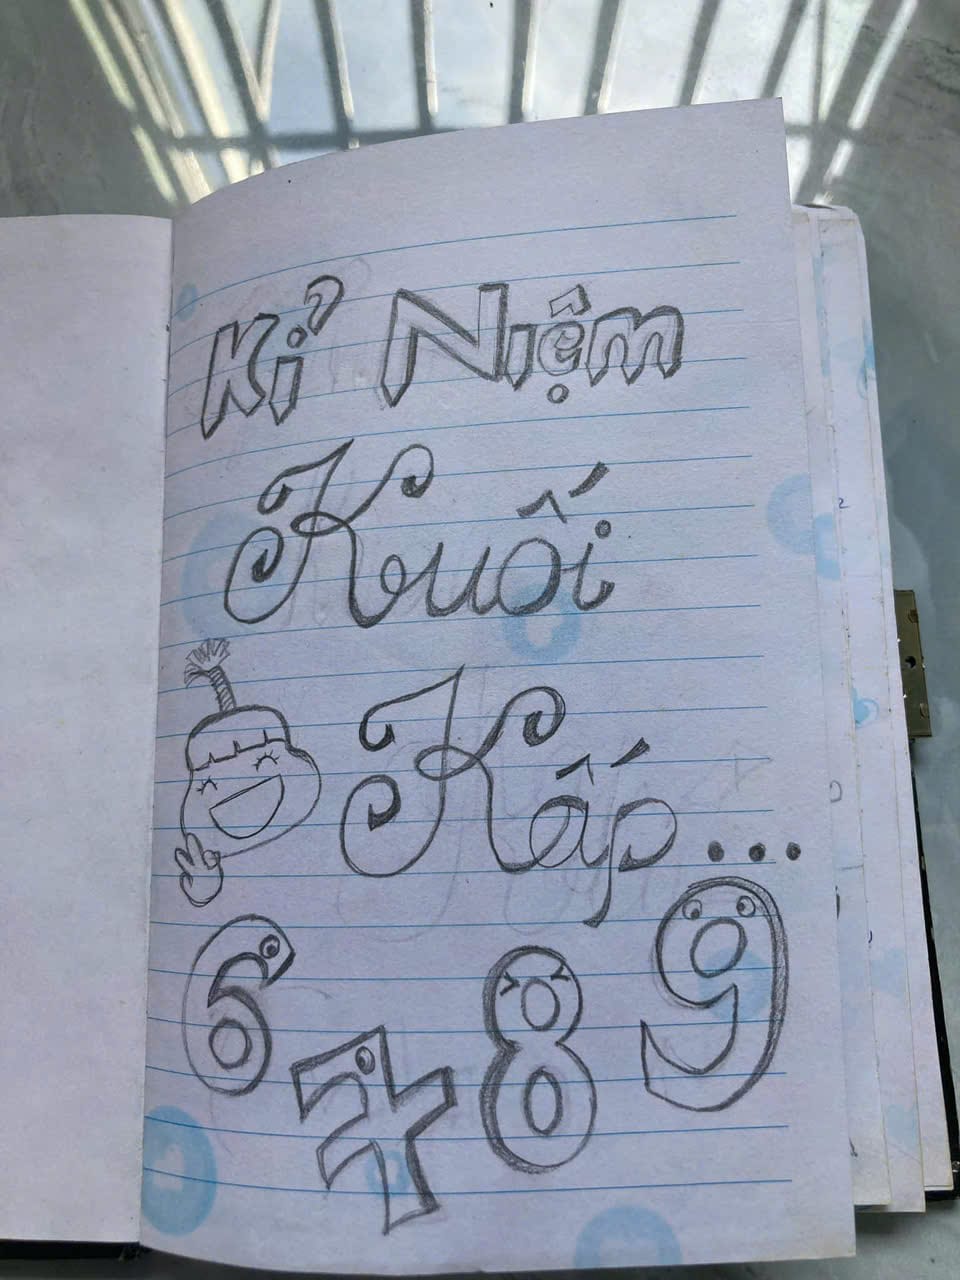 Kỉ Niệm
Kuối
Kấp...
6 7 8 9